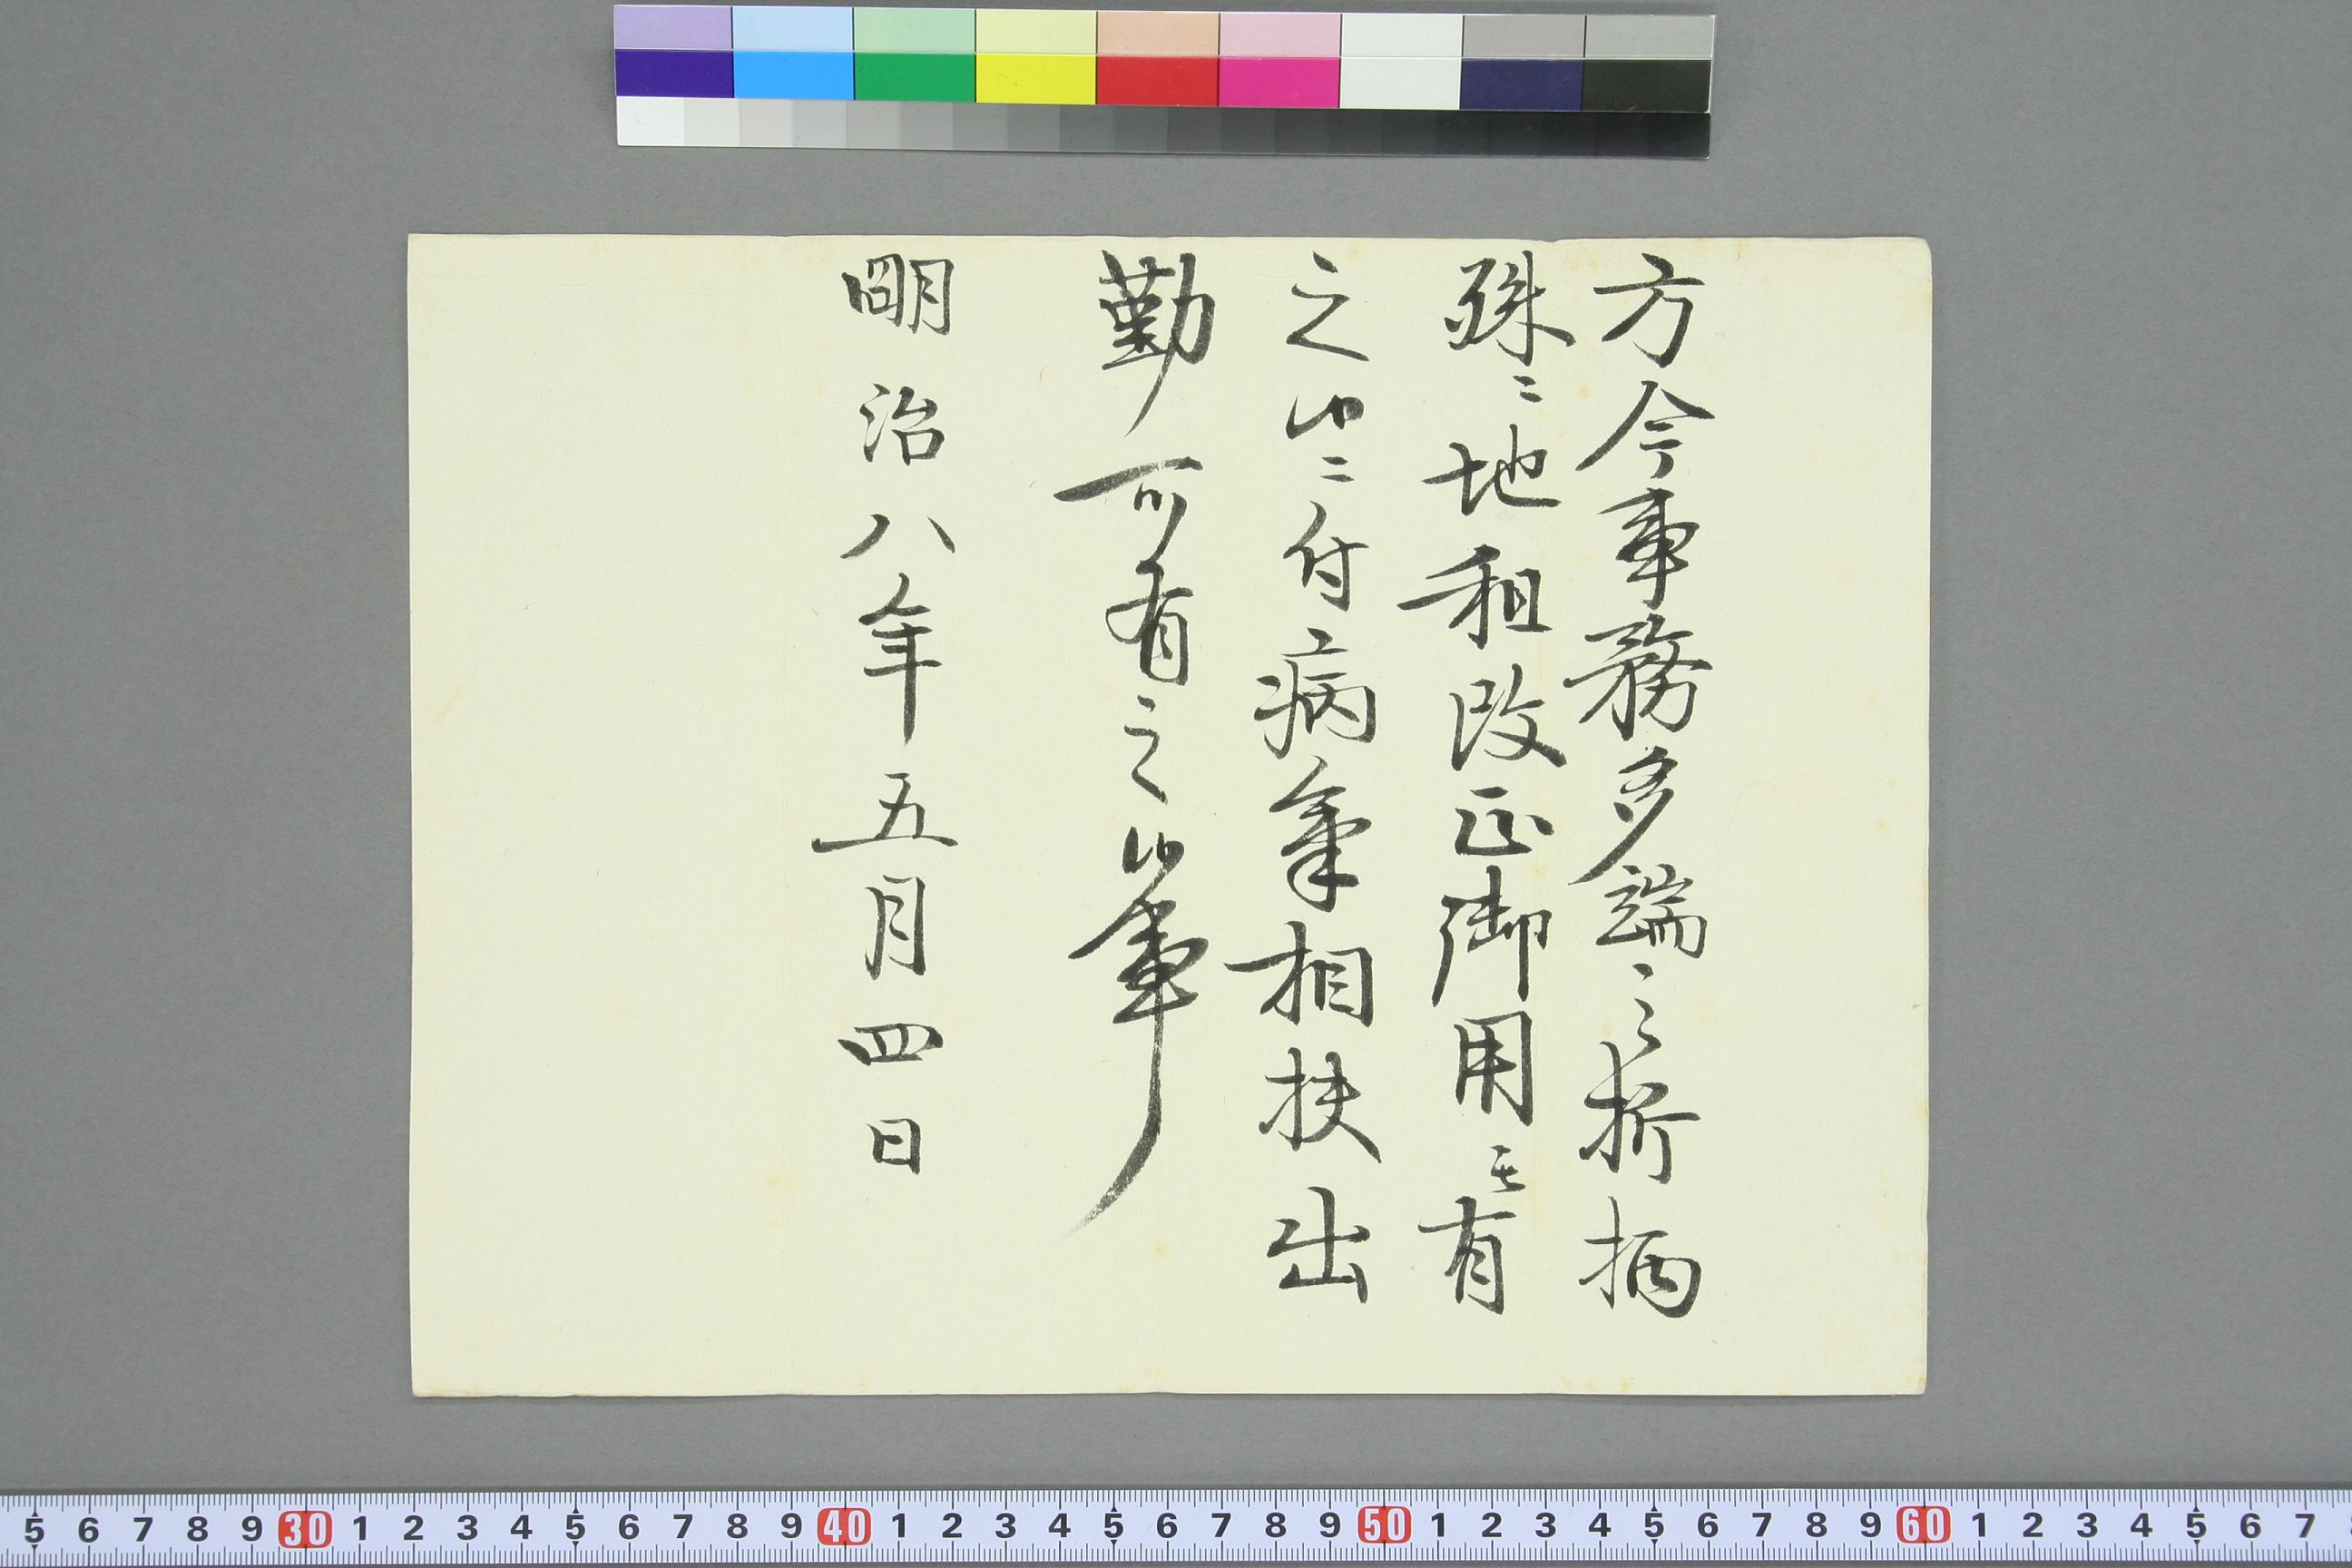 方今事務多端之折柄
殊ニ地租改正御用モ有
之候ニ付病氣相扶出
勤可有之候事
明治八年五月四日
5 6 7 8 9 30 1 2 3 4 5 6 7 8 9 40 1 2 3 4 5 6 7 8 9 50 1 2 3 4 5 6 7 8 9 60 1 2 3 4 5 6 7